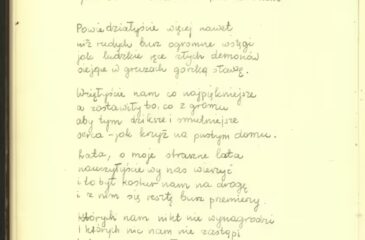 Powiedziałyście więcej nawet
niż rudych burz ogromne wstęgi
jak ludzkie złych demonów
siejąc w gruzach gorzką sławę.
Wzięłyście nam co najpiękniejsze
a zostawiły to, co z gromu
aby tym dziksze i smutniejsze
serca – jak krzyż na pustym domu.
Lata, o moje straszne lata
nauczyłyście wy nas wierzyć
i to był kostur nam na drogę
i z nim się resztę burz przemierzy.
Których nam nikt nie wynagrodzi
i których nic nam nie zastąpi